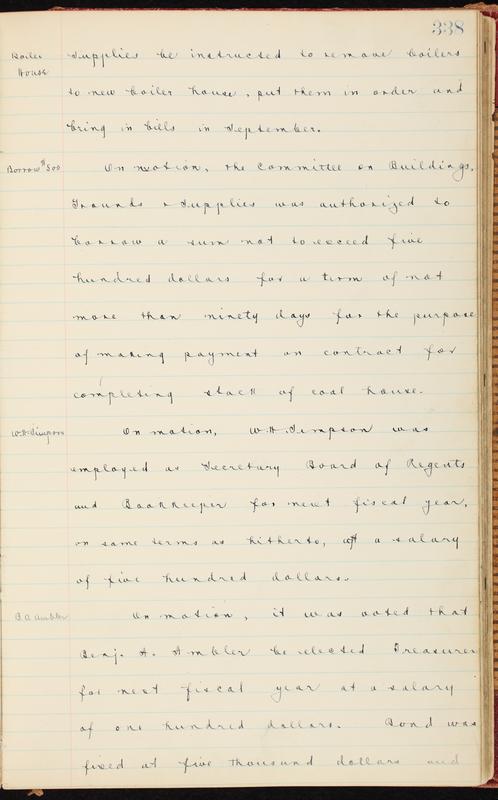 338
Boiler House
supplies be instructed to remove boilers
to new boiler house, put them in order and
bring in bills in September.
Borrow $500
On motion, the committee on Buildings,
Grounds & Supplies was authorized to
borrow a sum not to exceed five
hundred dollars for a term of not
more than ninety days for the purpose
of making payment on contract for
completing stack of coal house.
W.H. Simpson
On motion, W.H. Simpson was
employed as Secretary Board of Regents
and Bookkeeper for next fiscal year,
on same terms as hitherto, at a salary
of five hundred dollars.
B A Ambler
On motion, it was voted that
Benj. A. Ambler be elected Treasurer
for next fiscal year at a salary
of one hundred dollars. Bond was
fixed at five thousand dollars and